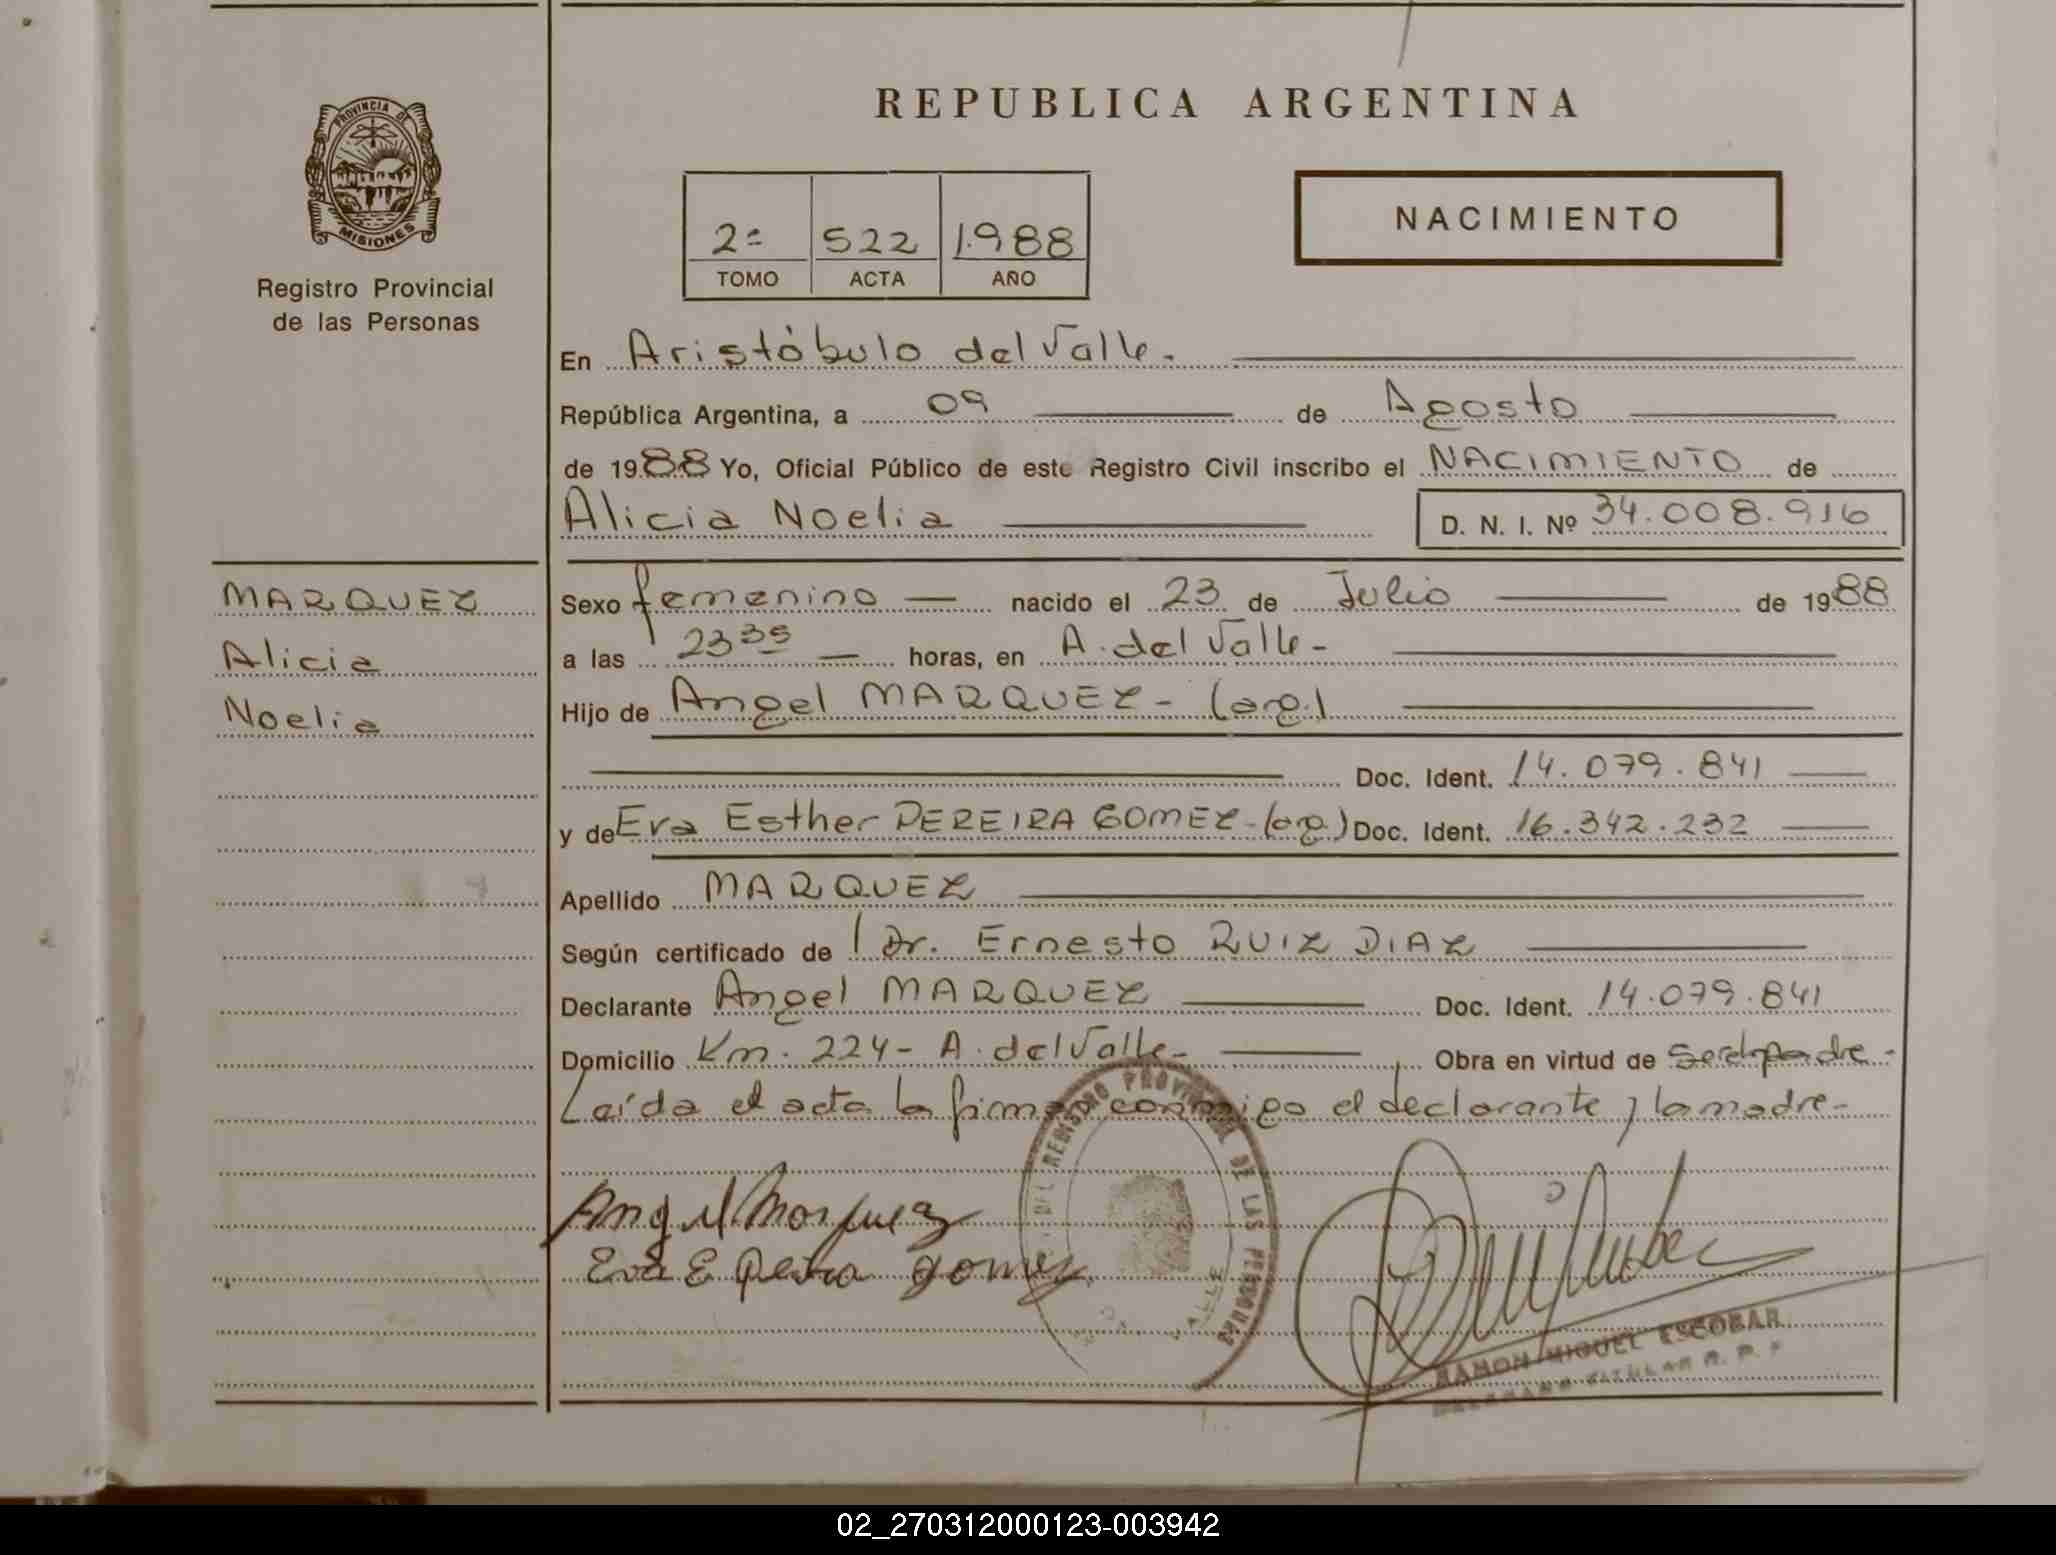 REPUBLICA ARGENTINA
PROVINCIA DE
MISIONES
Registro Provincial
de las Personas
2º 522 1.988
TOMO ACTA AÑO
NACIMIENTO
En Aristóbulo del Valle.
República Argentina, a 09 de Agosto
de 1988 Yo, Oficial Público de este Registro Civil inscribo el NACIMIENTO de
Alicia Noelia D. N. I. Nº 34.008.916
MARQUEZ
Alicia
Noelia
Sexo femenino — nacido el 23 de Julio de 1988
a las 23 35 — horas, en A. del Valle -
Hijo de Angel MARQUEZ - (arg.)
Doc. Ident. 14.079.841
y de Eva Esther PEREIRA GOMEZ - (arg.) Doc. Ident. 16.342.232
Apellido MARQUEZ
Según certificado de Dr. Ernesto RUIZ DIAZ
Declarante Angel MARQUEZ Doc. Ident. 14.079.841
Domicilio Km. 224 - A. del Valle - Obra en virtud de ser el padre -
Leída el acta la firma conmigo el declarante y la madre -
DEL REGISTRO PROVINCIAL DE LAS PERSONAS
VALLE
Angel Marquez
Eva E Pereira Gomez
RAMON MIGUEL ESCOBAR
TITULAR R. P. P
02_270312000123-003942